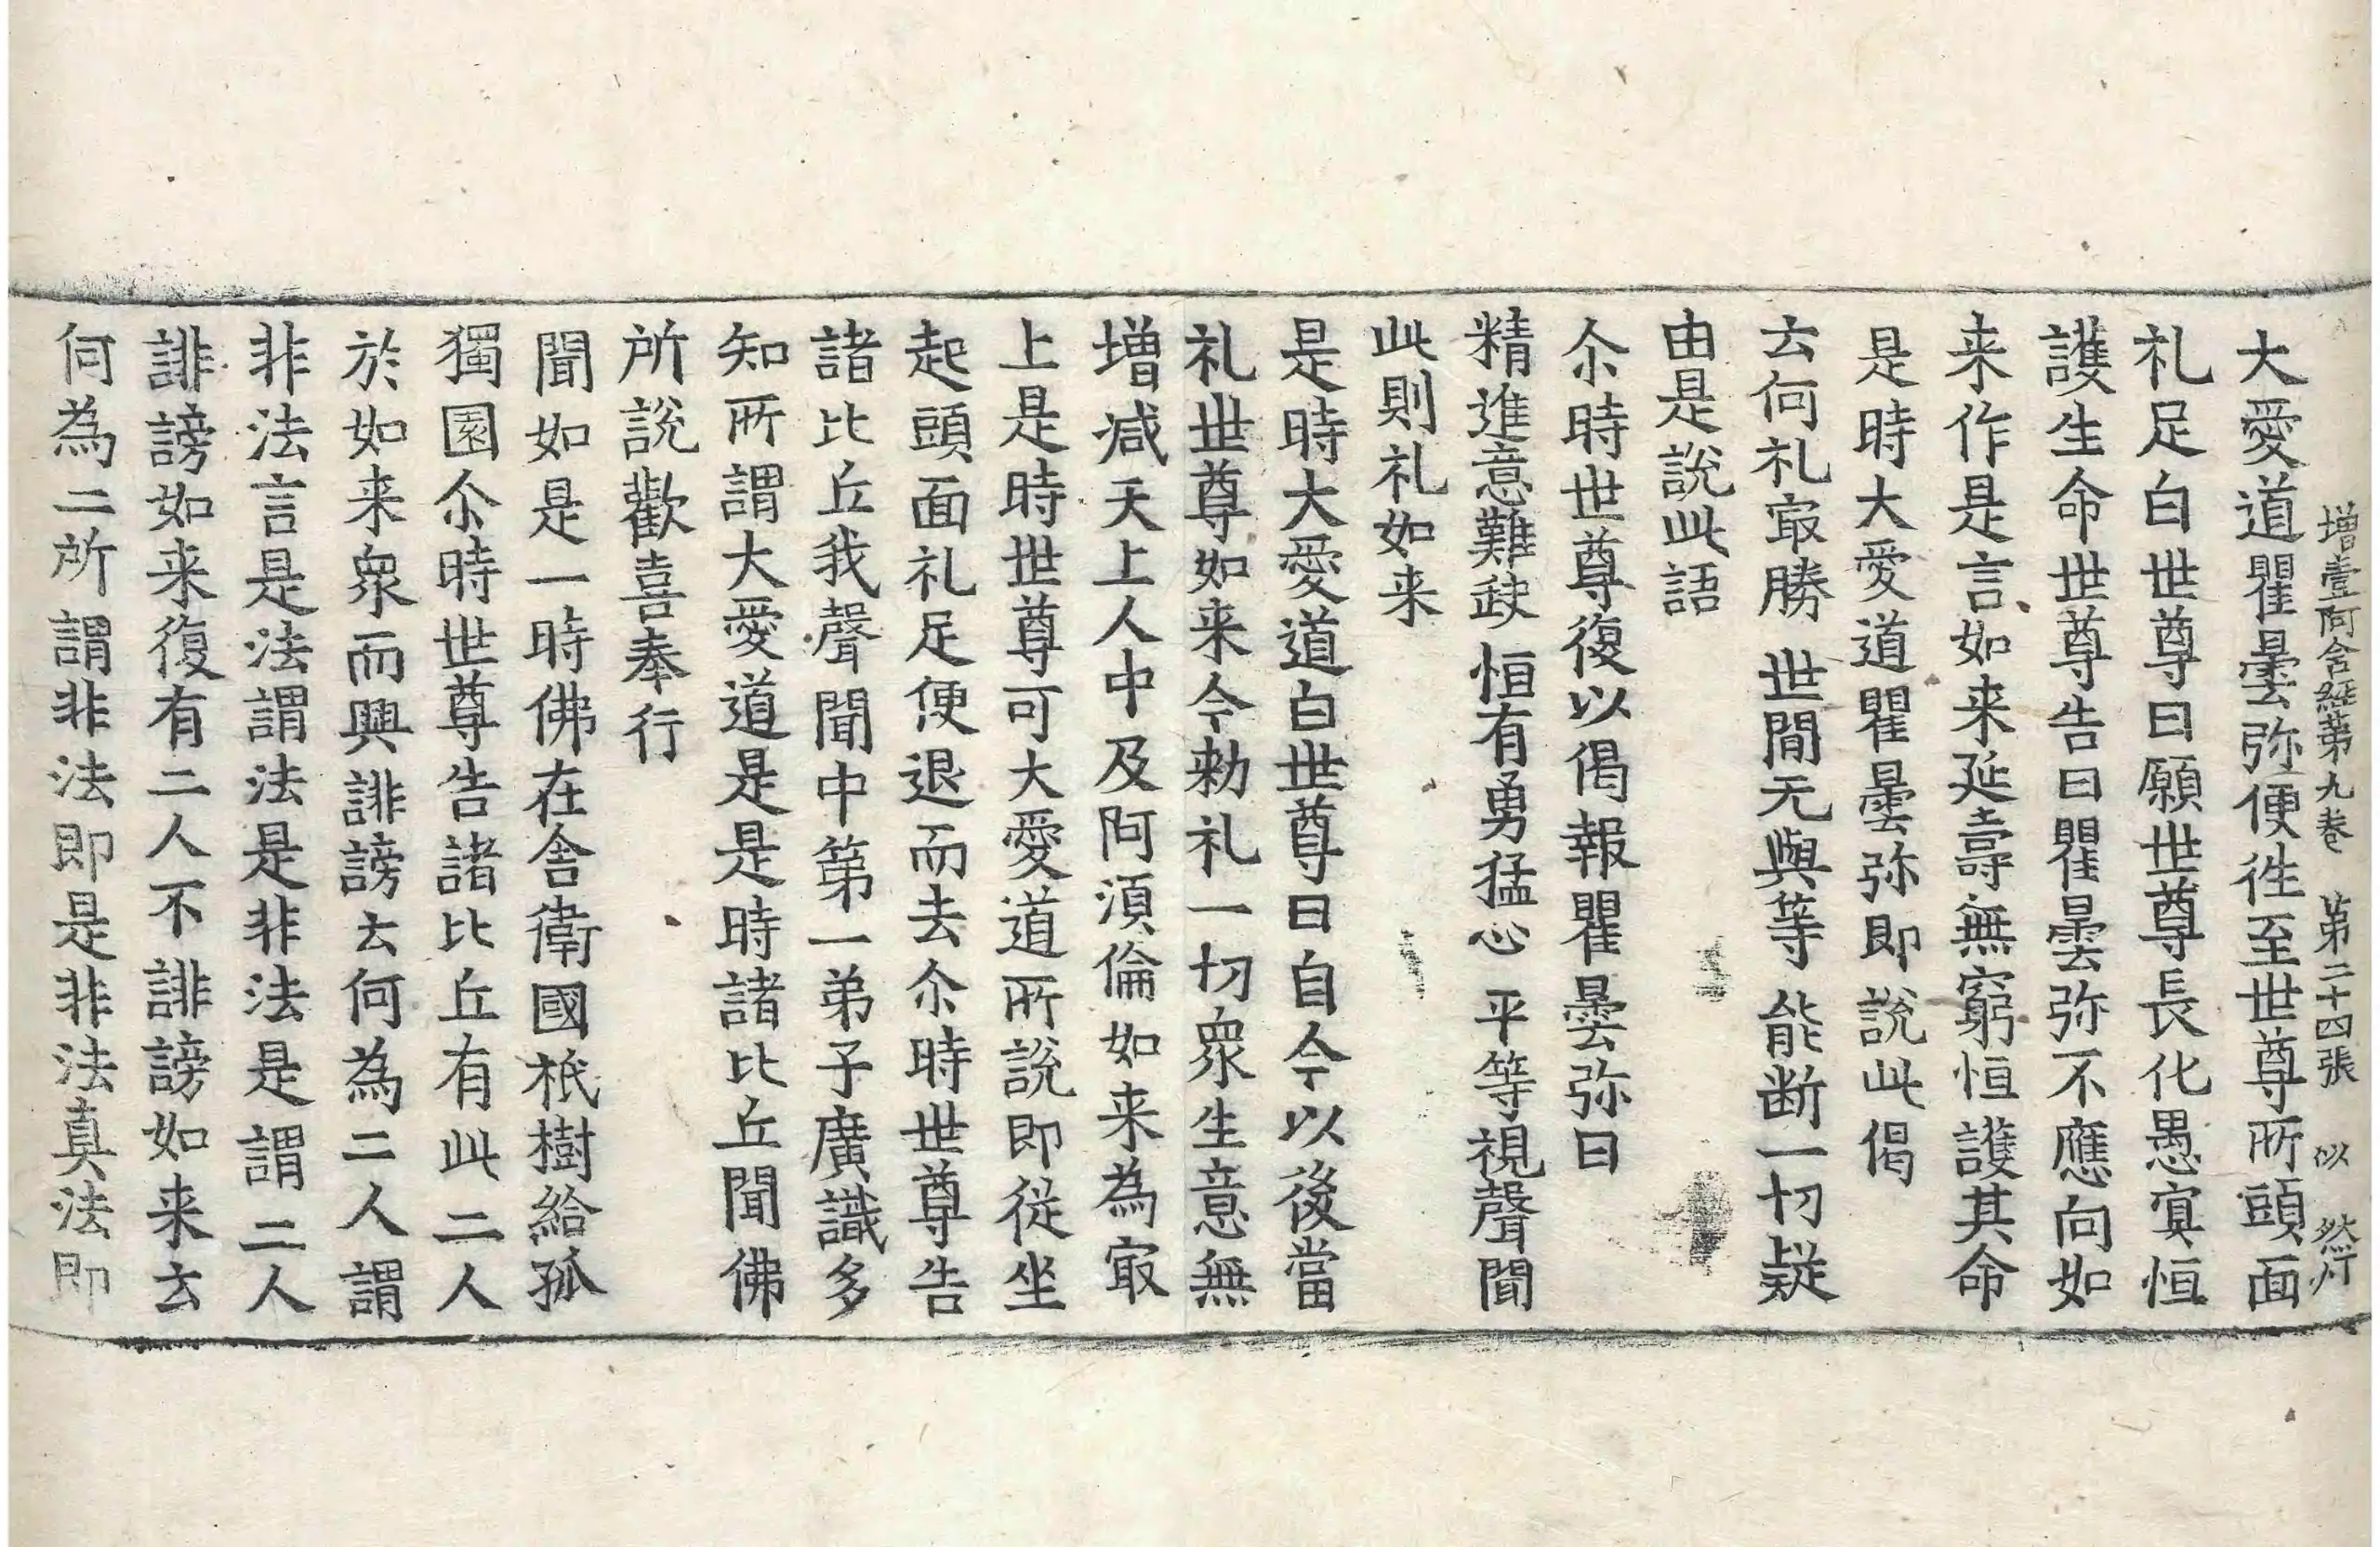 增壹阿含経第九卷 第二十四張 以 㸐
大愛道瞿曇弥便徃至世尊所頭面
礼足白世尊曰願世尊長化愚㝠恒
護生命世尊告曰瞿曇弥不應向如
来作是言如来延壽無窮恒護其命
是時大愛道瞿曇弥即說此偈
云何礼㝡勝 世間无與等 能断一切疑
由是說此語
尒時世尊復以偈報瞿曇弥曰
精進意難缺 恒有勇猛心 平等視聲聞
此則礼如来
是時大愛道白世尊曰自今以後當
礼世尊如来今勑礼一切眾生意無
增減天上人中及阿須倫如来為㝡
上是時世尊可大愛道所說即從坐
起頭面礼足便退而去尒時世尊告
諸比丘我聲聞中第一弟子廣識多
知所謂大愛道是是時諸比丘聞佛
所說歡喜奉行
聞如是一時佛在舍衛國祇樹給孤
獨園尒時世尊告諸比丘有此二人
於如来眾而興誹謗云何為二人謂
非法言是法謂法是非法是謂二人
誹謗如来復有二人不誹謗如来云
何為二所謂非法即是非法真法即